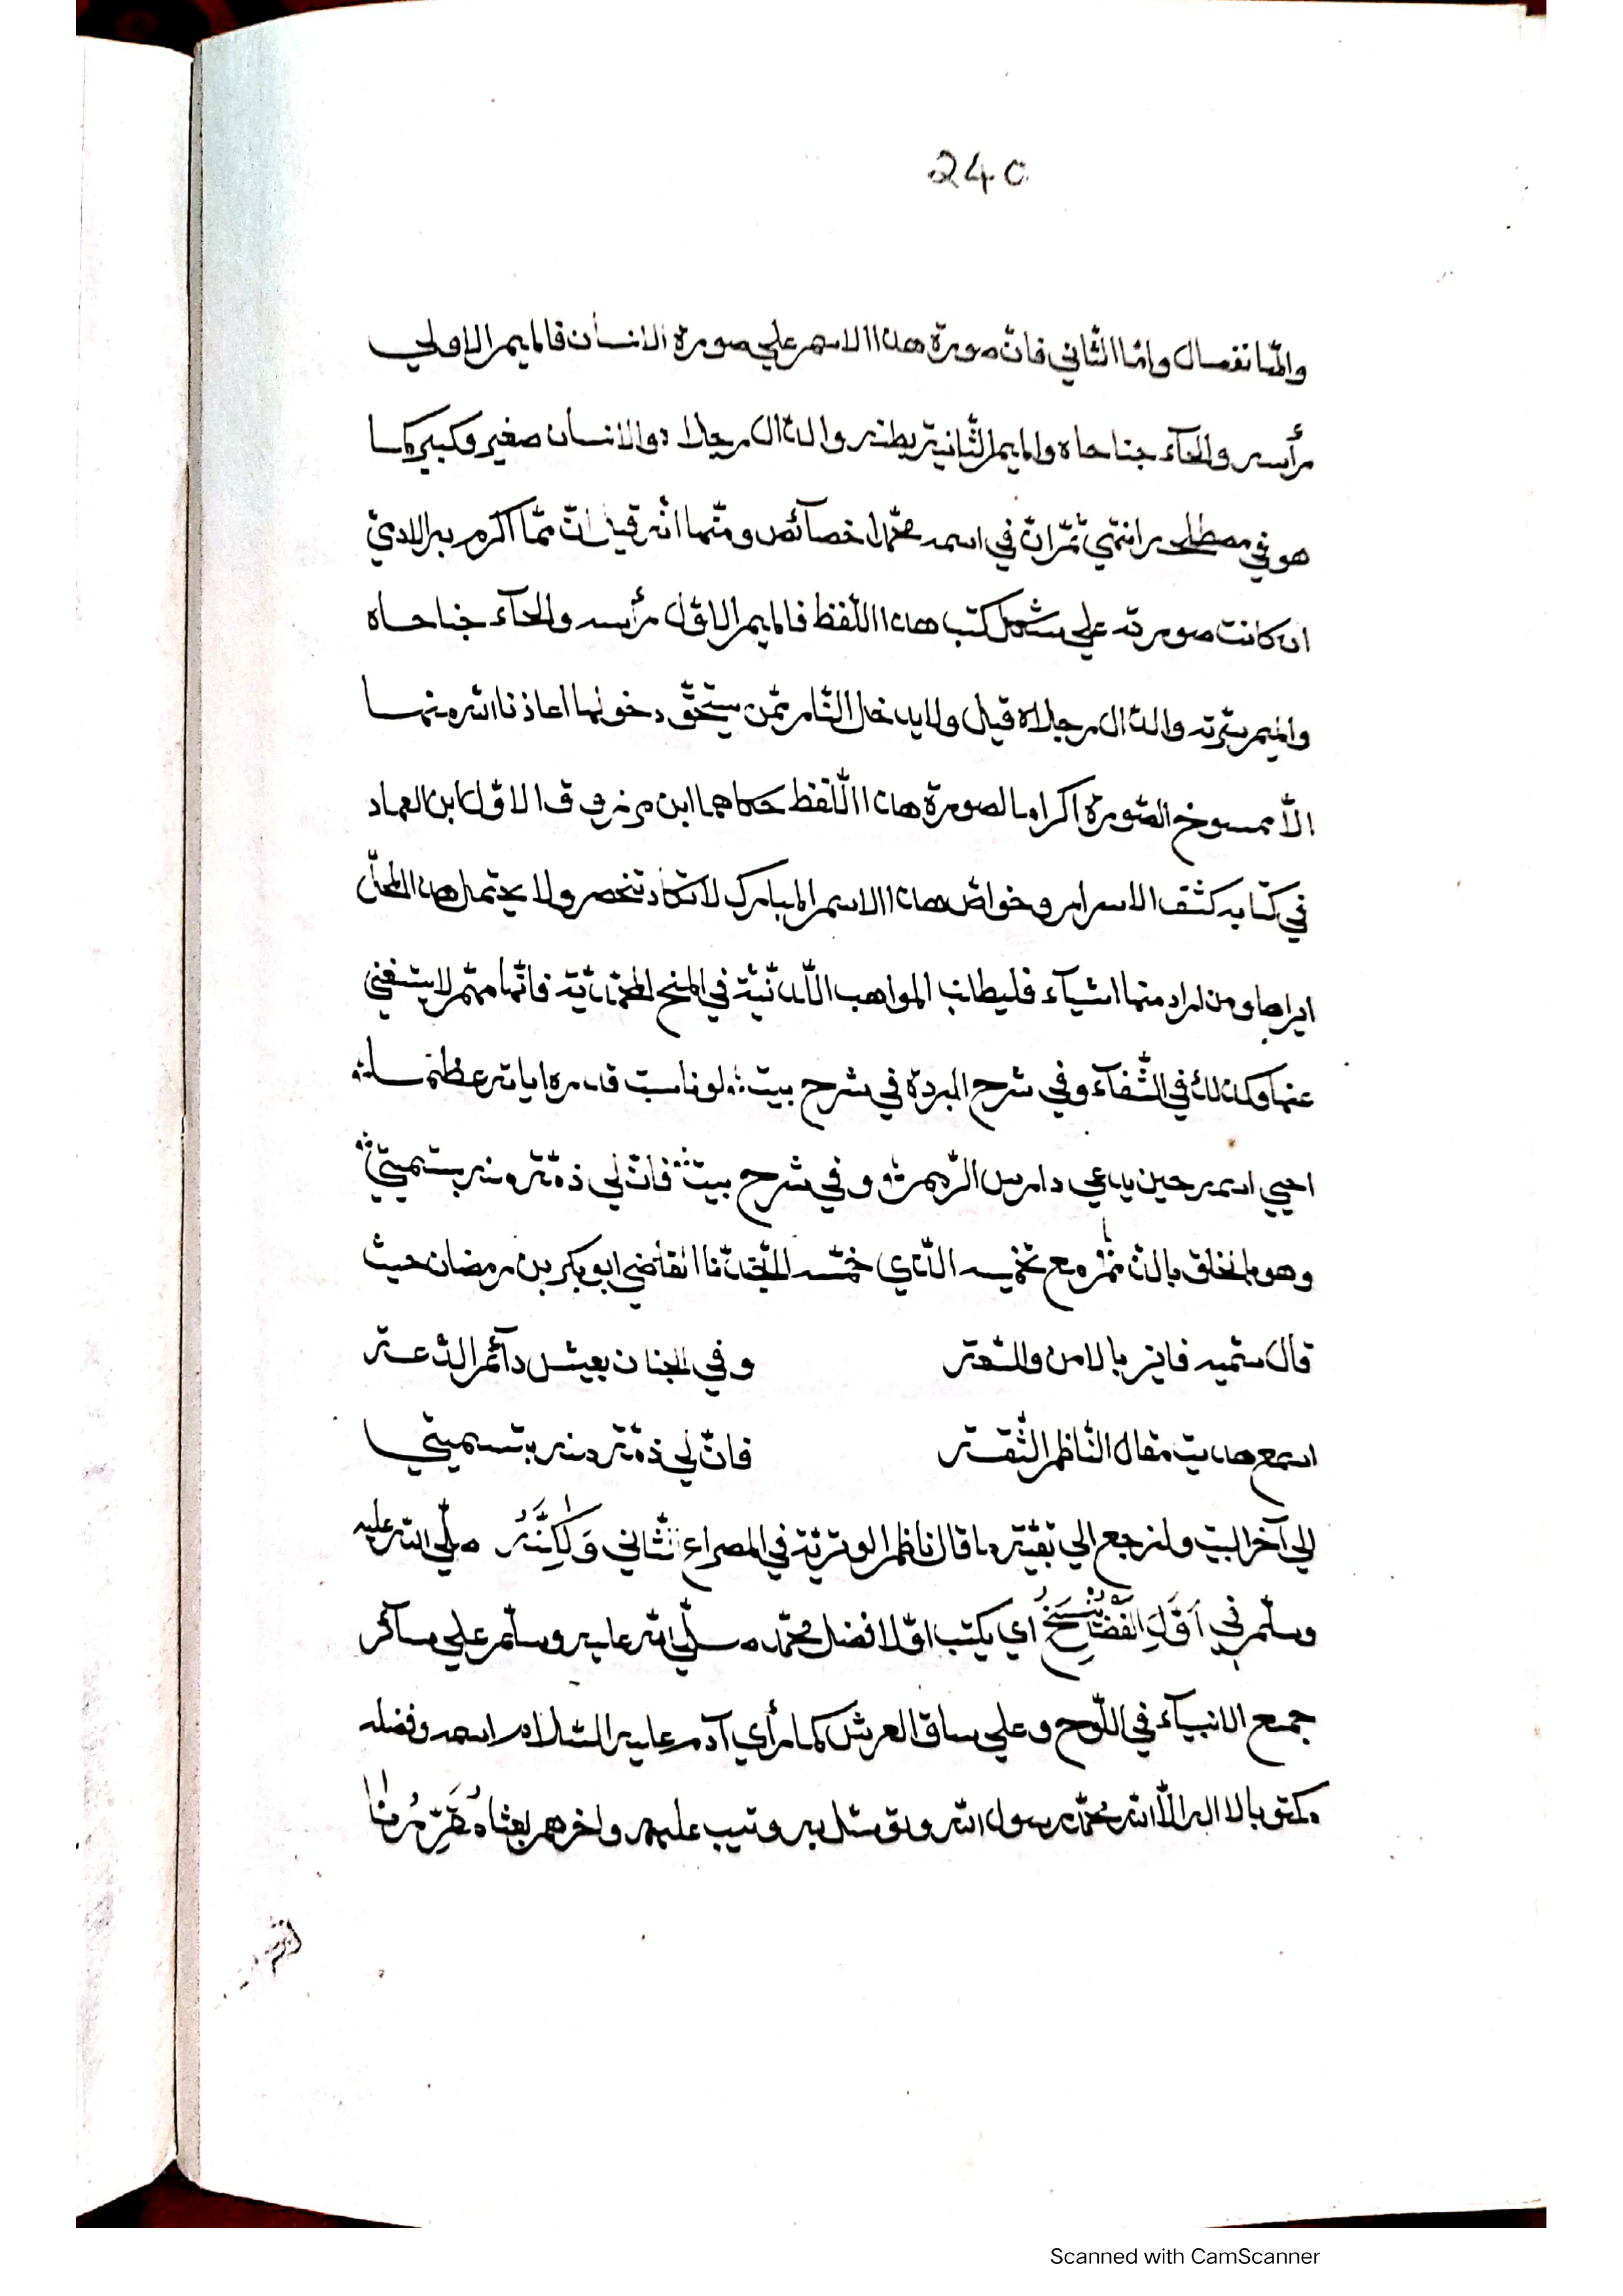 240
والمانفسال وامّا الثّاني فانّ صورة هذا الاسم علي صورة الانسان فالميم الاولي
رأسه والحآء جناحاه والميم الثّانية بطنه والدّال رجلا ذو الانسان صغير وكبير كما
هو في مصطلحه انتهي ثمّ انّ في اسمه محمّد خصآئص ومنها انّه قيل انّ ممّا اكرم به الادميّ
ان كانت صورته علي شكل كتب هذا اللّفظ فالميم الاوّل رأسه والحآء جناحاه
والميم سرّته والدّال رجلاه قيل ولا يدخل النّار ممّن يستحقّ دخولها اعاذنا الله منها
الاّ ممسوخ الصّورة اكراما لصورة هذا اللّفظ حكاهما ابن مرزوق الاوّل ابن العماد
في كتابه كشف الاسرار وخواصّ هذا الاسم المبارك لا تكاد تنحصر ولا يحتمل هذا المحلّ
ايرادها ومن اراد منها اشيآء فليطالب المواهب اللّدنّيّة في المنح المحمّديّة فانّها مهمّ لا يستغني
عنها وكذلك في الشّفآء وفي شرح البردة في شرح بيت لو ناسبت قدره اياته عظما
احيي اسمه حين يدعي دارس الرّمم وفي شرح بيت فانّ لي ذمّة منه بتسميتي
وهو بالخلق بالذّمم مع تخميسه الّذي خمّسه لجدّنا القاضي ابو بكر بن رمضان حيث
قال سميه فايز بالامن والسّعة وفي الجنان بعيش دآئم الدّعة
اسمع حديث مقال النّاظم الثّقة فانّ لي ذمّة منه بتسميتي
الي آخر البيت ولنرجع الي بقيّة ما قال ناظم الوتريّة في المصراع الثّاني وَلٰكِنَّهُ صلّي الله عليه
وسلّم في اَوَّلِ الْفَضْلِ يُنْسَخُ اي يكتب اوّلا فضل محمّد صلّي الله عليه وسلّم علي سآئر
جمع الانبيآء في اللّوح وعلي ساق العرش كما رأي آدم عليه السّلام اسمه وفضله
مكتوبا لا اله الاّ الله محمّد رسول الله وتوسّل به وتيب عليهم واخرهم بعثا